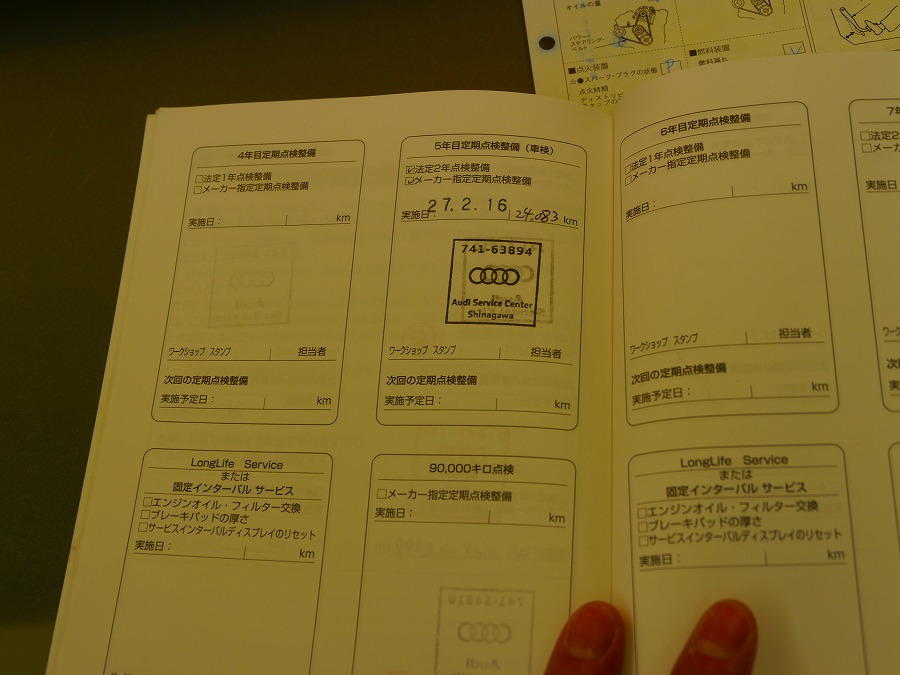 オイルの量
パワー・
ステアリング・
ベルト
■点火装置
☆●スパーク・プラグの状態
点火時期
■燃料装置
燃料漏れ
4年目定期点検整備
□法定1年点検整備
□メーカー指定定期点検整備
実施日： km
ワークショップ スタンプ 担当者
次回の定期点検整備
実施予定日： km
5年目定期点検整備（車検）
☑法定2年点検整備
☑メーカー指定定期点検整備
実施日： 27.2.16 24,083 km
741-63894
Audi Service Center
Shinagawa
ワークショップ スタンプ 担当者
次回の定期点検整備
実施予定日： km
6年目定期点検整備
□法定1年点検整備
□メーカー指定定期点検整備
実施日： km
ワークショップ スタンプ 担当者
次回の定期点検整備
実施予定日： km
□法定2
□メー
実施日
LongLife Service
または
固定インターバル サービス
□エンジンオイル・フィルター交換
□ブレーキパッドの厚さ
□サービスインターバルディスプレイのリセット
実施日： km
90,000キロ点検
□メーカー指定定期点検整備
実施日： km
LongLife Service
または
固定インターバル サービス
□エンジンオイル・フィルター交換
□ブレーキパッドの厚さ
□サービスインターバルディスプレイのリセット
実施日： km